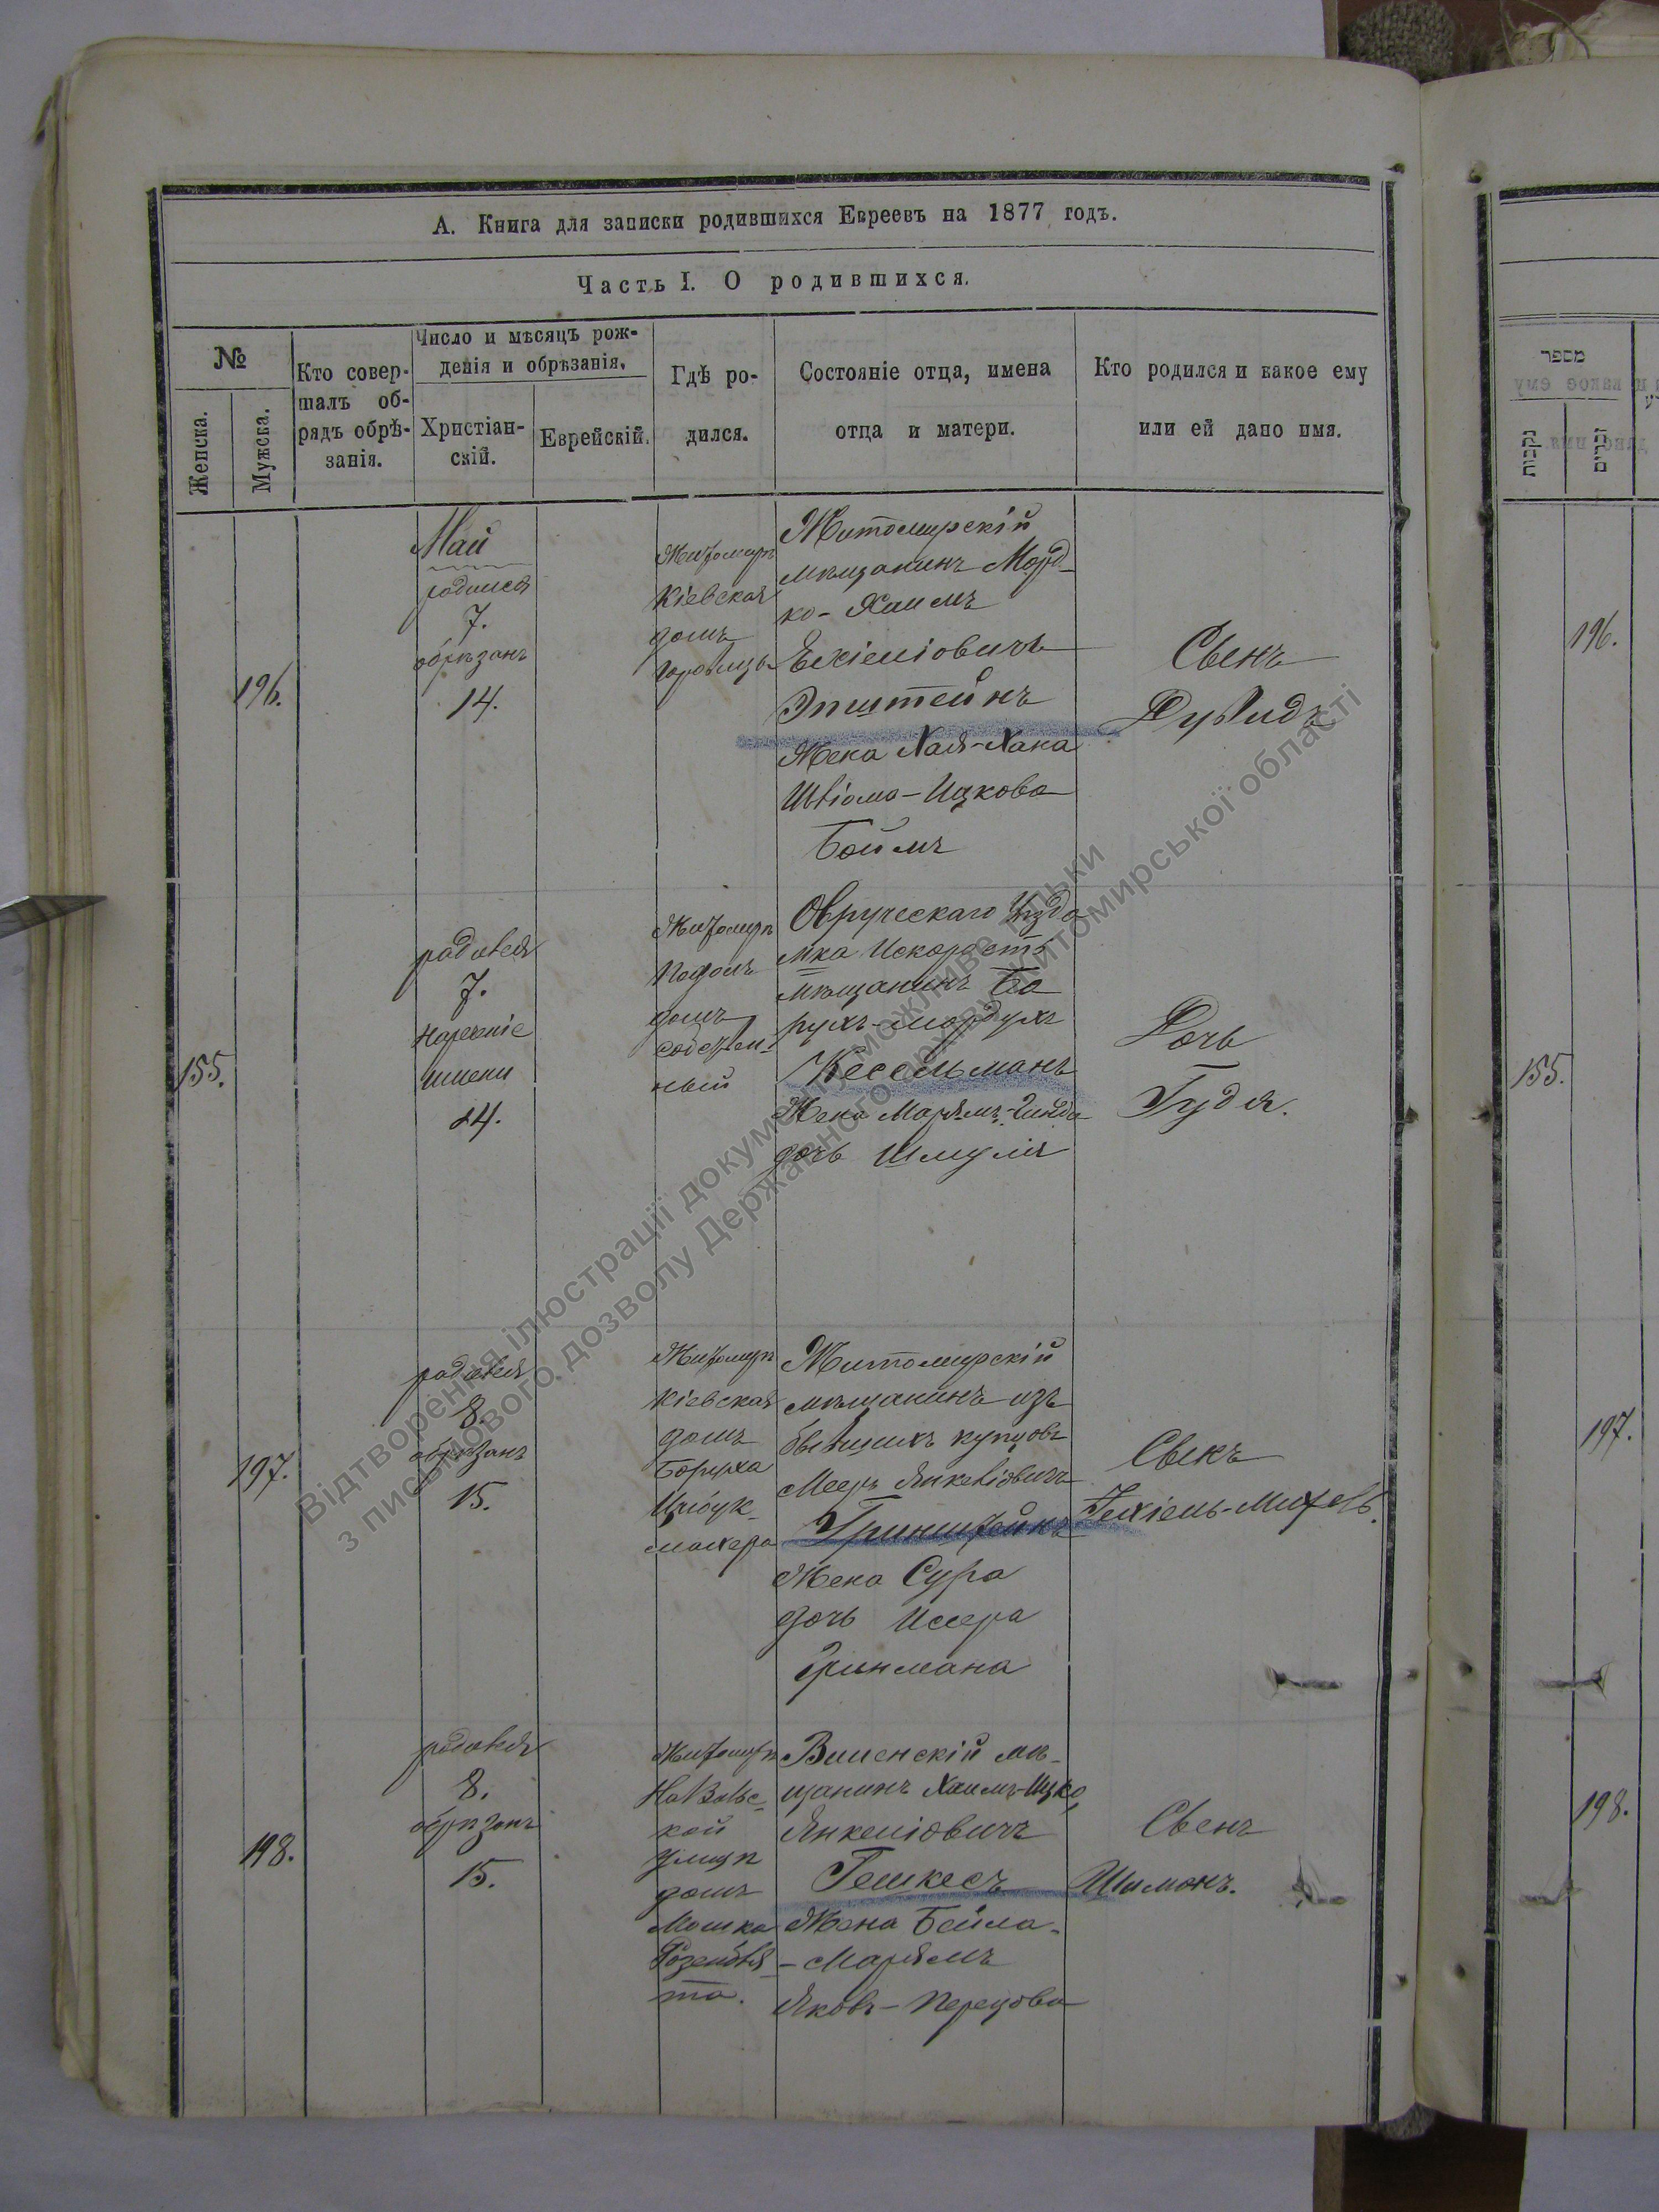 А. Книга для записки родившихся Евреевъ на 1877 годъ.
Часть I. О родившихся.
№
Женска.
Мужска.
Кто совер-
шалъ об-
рядъ обрѣ-
занія.
Число и мѣсяцъ рож-
денія и обрѣзанія.
Христіан-
скій.
Еврейскій.
Гдѣ ро-
дился.
Состояніе отца, имена
отца и матери.
Кто родился и какое ему
или ей дано имя.
196.
Май
родился
7.
обрѣзанъ
14.
Житомиръ
Кіевская
домъ
Житомирскій
мѣщанинъ Морд-
ко-Хаимъ
Ехіеліовичъ
Эпштейнъ
Жена Хая-Хана
Ицкова
Боймъ
Сынъ
Дувидъ
155.
родился
7.
нареченіе
имени
14.
Житомиръ
домъ
собствен-
ный
Овручскаго Уѣзда
мка Искорость
мѣщанинъ Бо
рухъ-Мордухъ
Кесельманъ
Жена Марямъ-Гинда
дочь Шмуля
Дочь
Гудя.
197.
родился
8.
обрѣзанъ
15.
Житомиръ
Кіевская
домъ
Боруха
Цибук-
махера
Житомирскій
мѣщанинъ изъ
бывшихъ купцовъ
Мееръ Янкеліовичъ
Гринштейнъ
Жена Сура
дочь Исера
Гринмана
Сынъ
Іехіель-Михель.
198.
родился
8.
обрѣзанъ
15.
Житомиръ
кой
улицѣ
домъ
Мошка
Розенбля-
та.
Виленскій мѣ-
щанинъ Хаимъ-Ицко
Янкеліовичъ
Гешкесъ
Жена Бейла-
-Марямъ
Яковъ-Перецова
Сынъ
Шимонъ.
מספר
נקבות
זכרים
196.
155.
197.
198.
Відтворення ілюстрації документу можливе тільки
з письмового дозволу Державного архіву Житомирської області